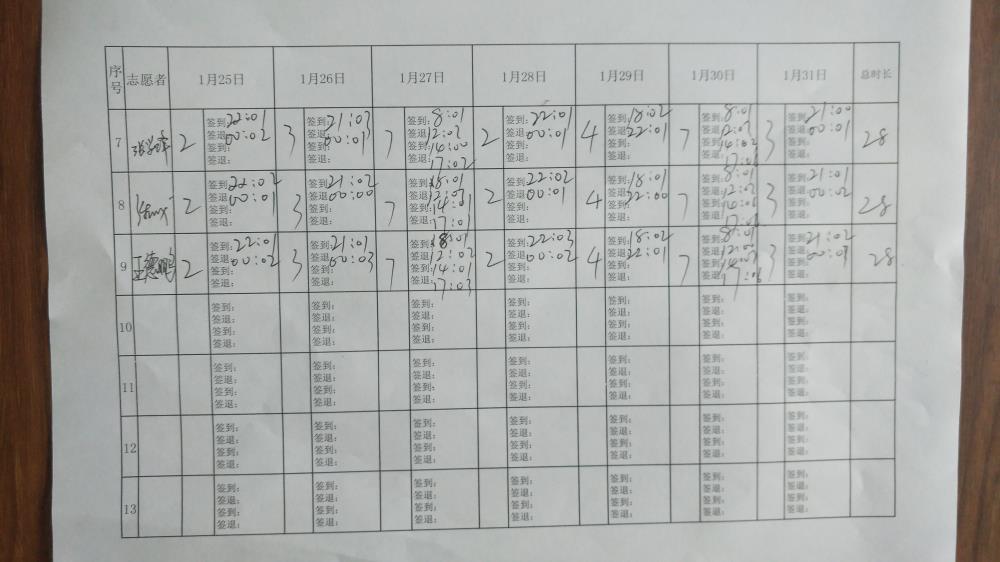 序号 志愿者 1月25日 1月26日 1月27日 1月28日 1月29日 1月30日 1月31日 总时长
7 2 签到:22:01 3 签到:21:03 7 签到:8:01 2 签到:22:01 4 签到:18:02 7 签到:8:01 3 签到:21:00 28
签退:00:02 签退:00:01 签退:12:02 签退:00:01 签退:22:01 签退:12:02 签退:00:01
签到: 签到: 签到:14:00 签到: 签到: 签到:14:02 签到:
签退: 签退: 签退:17:02 签退: 签退: 签退:17:01 签退:
8 2 签到:22:02 3 签到:21:02 7 签到:18:01 2 签到:22:02 4 签到:18:01 7 签到:8:01 3 签到:21:01 28
签退:00:01 签退:00:00 签退: 签退:00:01 签退:22:00 签退:12:02 签退:00:02
签到: 签到: 签到:14:01 签到: 签到: 签到: 签到:
签退: 签退: 签退:17:01 签退: 签退: 签退: 签退:
9 王德鹏 2 签到:22:01 3 签到:21:01 7 签到:8:01 2 签到:22:03 4 签到:18:02 7 签到:8:01 3 签到:21:02 28
签退:00:02 签退:00:03 签退:12:02 签退:00:02 签退:22:01 签退: 签退:00:01
签到: 签到: 签到:14:01 签到: 签到: 签到: 签到:
签退: 签退: 签退:17:03 签退: 签退: 签退: 签退:
10 签到: 签到: 签到: 签到: 签到: 签到: 签到:
签退: 签退: 签退: 签退: 签退: 签退: 签退:
签到: 签到: 签到: 签到: 签到: 签到: 签到:
签退: 签退: 签退: 签退: 签退: 签退: 签退:
11 签到: 签到: 签到: 签到: 签到: 签到: 签到:
签退: 签退: 签退: 签退: 签退: 签退: 签退:
签到: 签到: 签到: 签到: 签到: 签到: 签到:
签退: 签退: 签退: 签退: 签退: 签退: 签退:
12 签到: 签到: 签到: 签到: 签到: 签到: 签到:
签退: 签退: 签退: 签退: 签退: 签退: 签退:
签到: 签到: 签到: 签到: 签到: 签到: 签到:
签退: 签退: 签退: 签退: 签退: 签退: 签退:
13 签到: 签到: 签到: 签到: 签到: 签到: 签到:
签退: 签退: 签退: 签退: 签退: 签退: 签退:
签到: 签到: 签到: 签到: 签到: 签到: 签到:
签退: 签退: 签退: 签退: 签退: 签退: 签退: